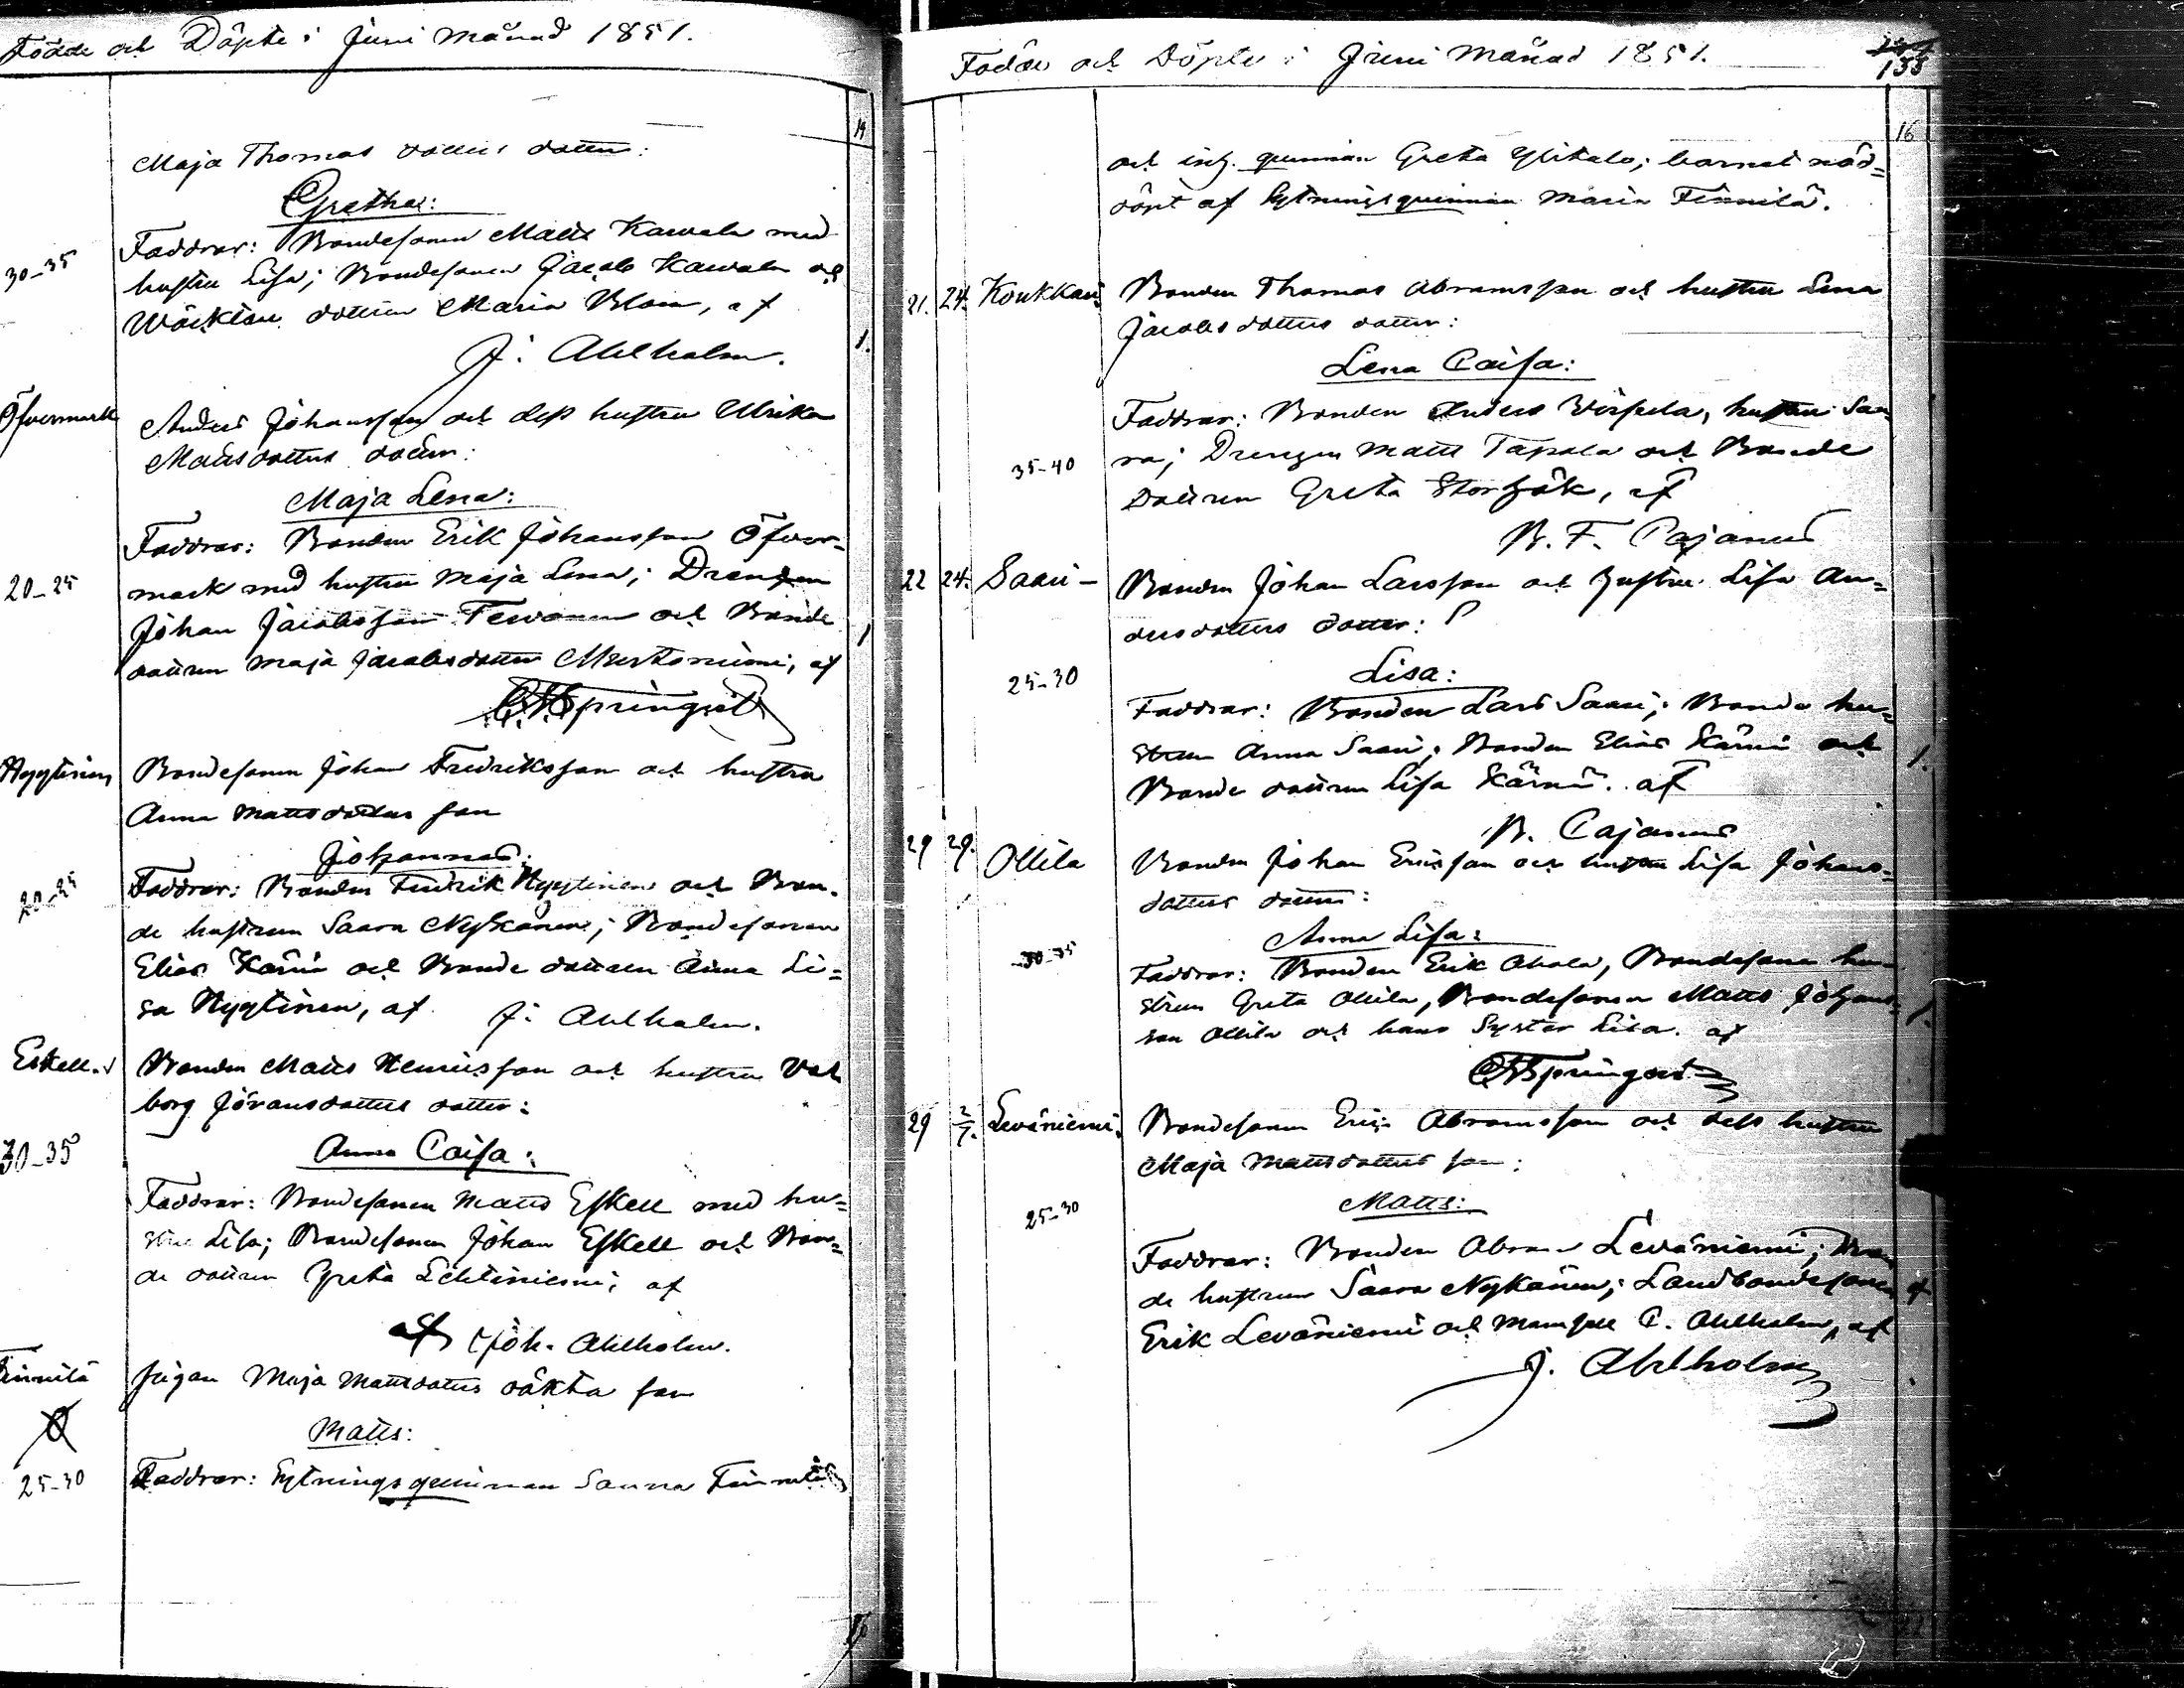 Födde och Döpte i Juni Månad 1851.
14
Maja Thomas dotters dotter:
Gretha:
30-35
Faddrar: Bondesonen Matts Kawala med
hustru Lisa; Bondesonen Jacob Kawala och
dottren Maria Blom, af
J. Ahlholm.
1.
Öfvermark
Anders Johansson och dess hustru Ulrika
Mattsdotters dotter:
Maja Lena:
20-25
Faddrar: Bonden Erik Johansson Öfver-
mark med hustru Maja Lena; Drengen
Johan Jacobsson och Bonde
dottren Maja Jacobsdotter af
1
Nyytinen
Bondesonen Johan Fredriksson och hustru
Anna Mattsdotters son
Johannes:
20-25
Faddrar: Bonden Fredrik Nyytinen och Bon-
de hustrun Saara Nykänen; Bondesonen
Elias Kärnä och Bonde dottren Anna Li=
sa Nyytinen, af J. Ahlholm.
Eskell
Bonden Matts Henricsson och hustru Val
borg Jöransdotters dotter:
Anna Caisa:
30-35
Faddrar: Bondesonen Matts Eskell med hu=
stru Lisa; Bondesonen Johan Eskell och Bon=
de dottren Greta Lehtiniemi; af
Joh. Ahlholm.
Finnilä
Pigan Maja Mattsdotters oäkta son
Matts:
25-30
Faddrar: Sytningsquinnan Sanna Finnilä
Födde och Döpte i Juni Månad 1851.
155
16
och inh. quinnan Greta Ylitalo; barnet nöd=
döpt af Sytningsquinnan Maria Finnilä.
21. 24. Koukkari
Bonden Thomas Abramsson och hustru Lena
Jacobsdotters dotter:
Lena Caisa:
35-40
Faddrar: Bonden Anders Wirpela, hustru Saa
ra; Drengen Matts Tapola och Bonde
Dottren Greta Storbjök, af
B. F. Cajanus
22 24. Saari
Bonden Johan Larsson och hustru Lisa An=
dersdotters dotter:
Lisa:
25-30
Faddrar: Bonden Lars Saari; Bonde hu=
strun Anna Saari; Bonden Elias Kärnä och
Bonde dottren Lisa Kärnä. af
B. Cajanus
1.
29 29. Ollila
Bonden Johan Ericsson och hustru Lisa Johans=
dotters dotter:
Anna Lisa:
30-35
Faddrar: Bonden Erik Ahola, Bondesone hu
strun Greta Ollila, Bondesonen Matts Johans=
son Ollila och hans Syster Lisa. af
1.
29 2/7. Leväniemi.
Bondesonen Eric Abramsson och dess hustru
Maja Mattsdotters son:
Matts:
25-30
Faddrar: Bonden Abram Leväniemi; Bon
de hustrun Saara Nykänen; Landbondesonen
Erik Leväniemi och Mamsell C. Ahlholm, af
J. Ahlholm